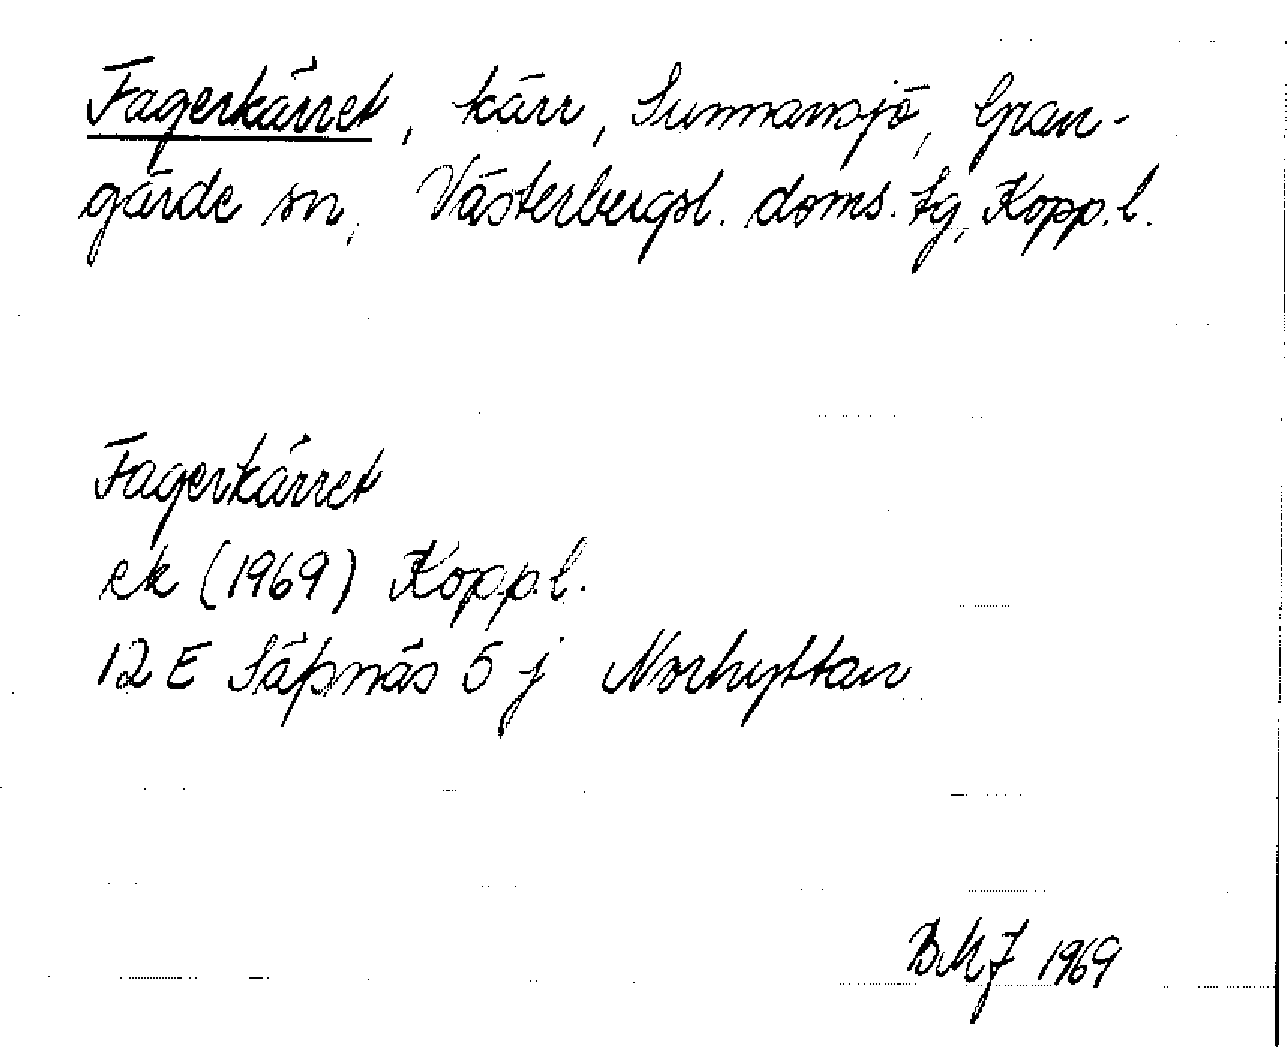 Fagerkärret, kärr, Sunnansjö, Gran-
gärde sn, Västerbergsl. doms. tg, Kopp. l.
Fagerkärret
ek (1969) Kopp. l.
12 E Säfsnäs 5 j Norhyttan
BMJ 1969